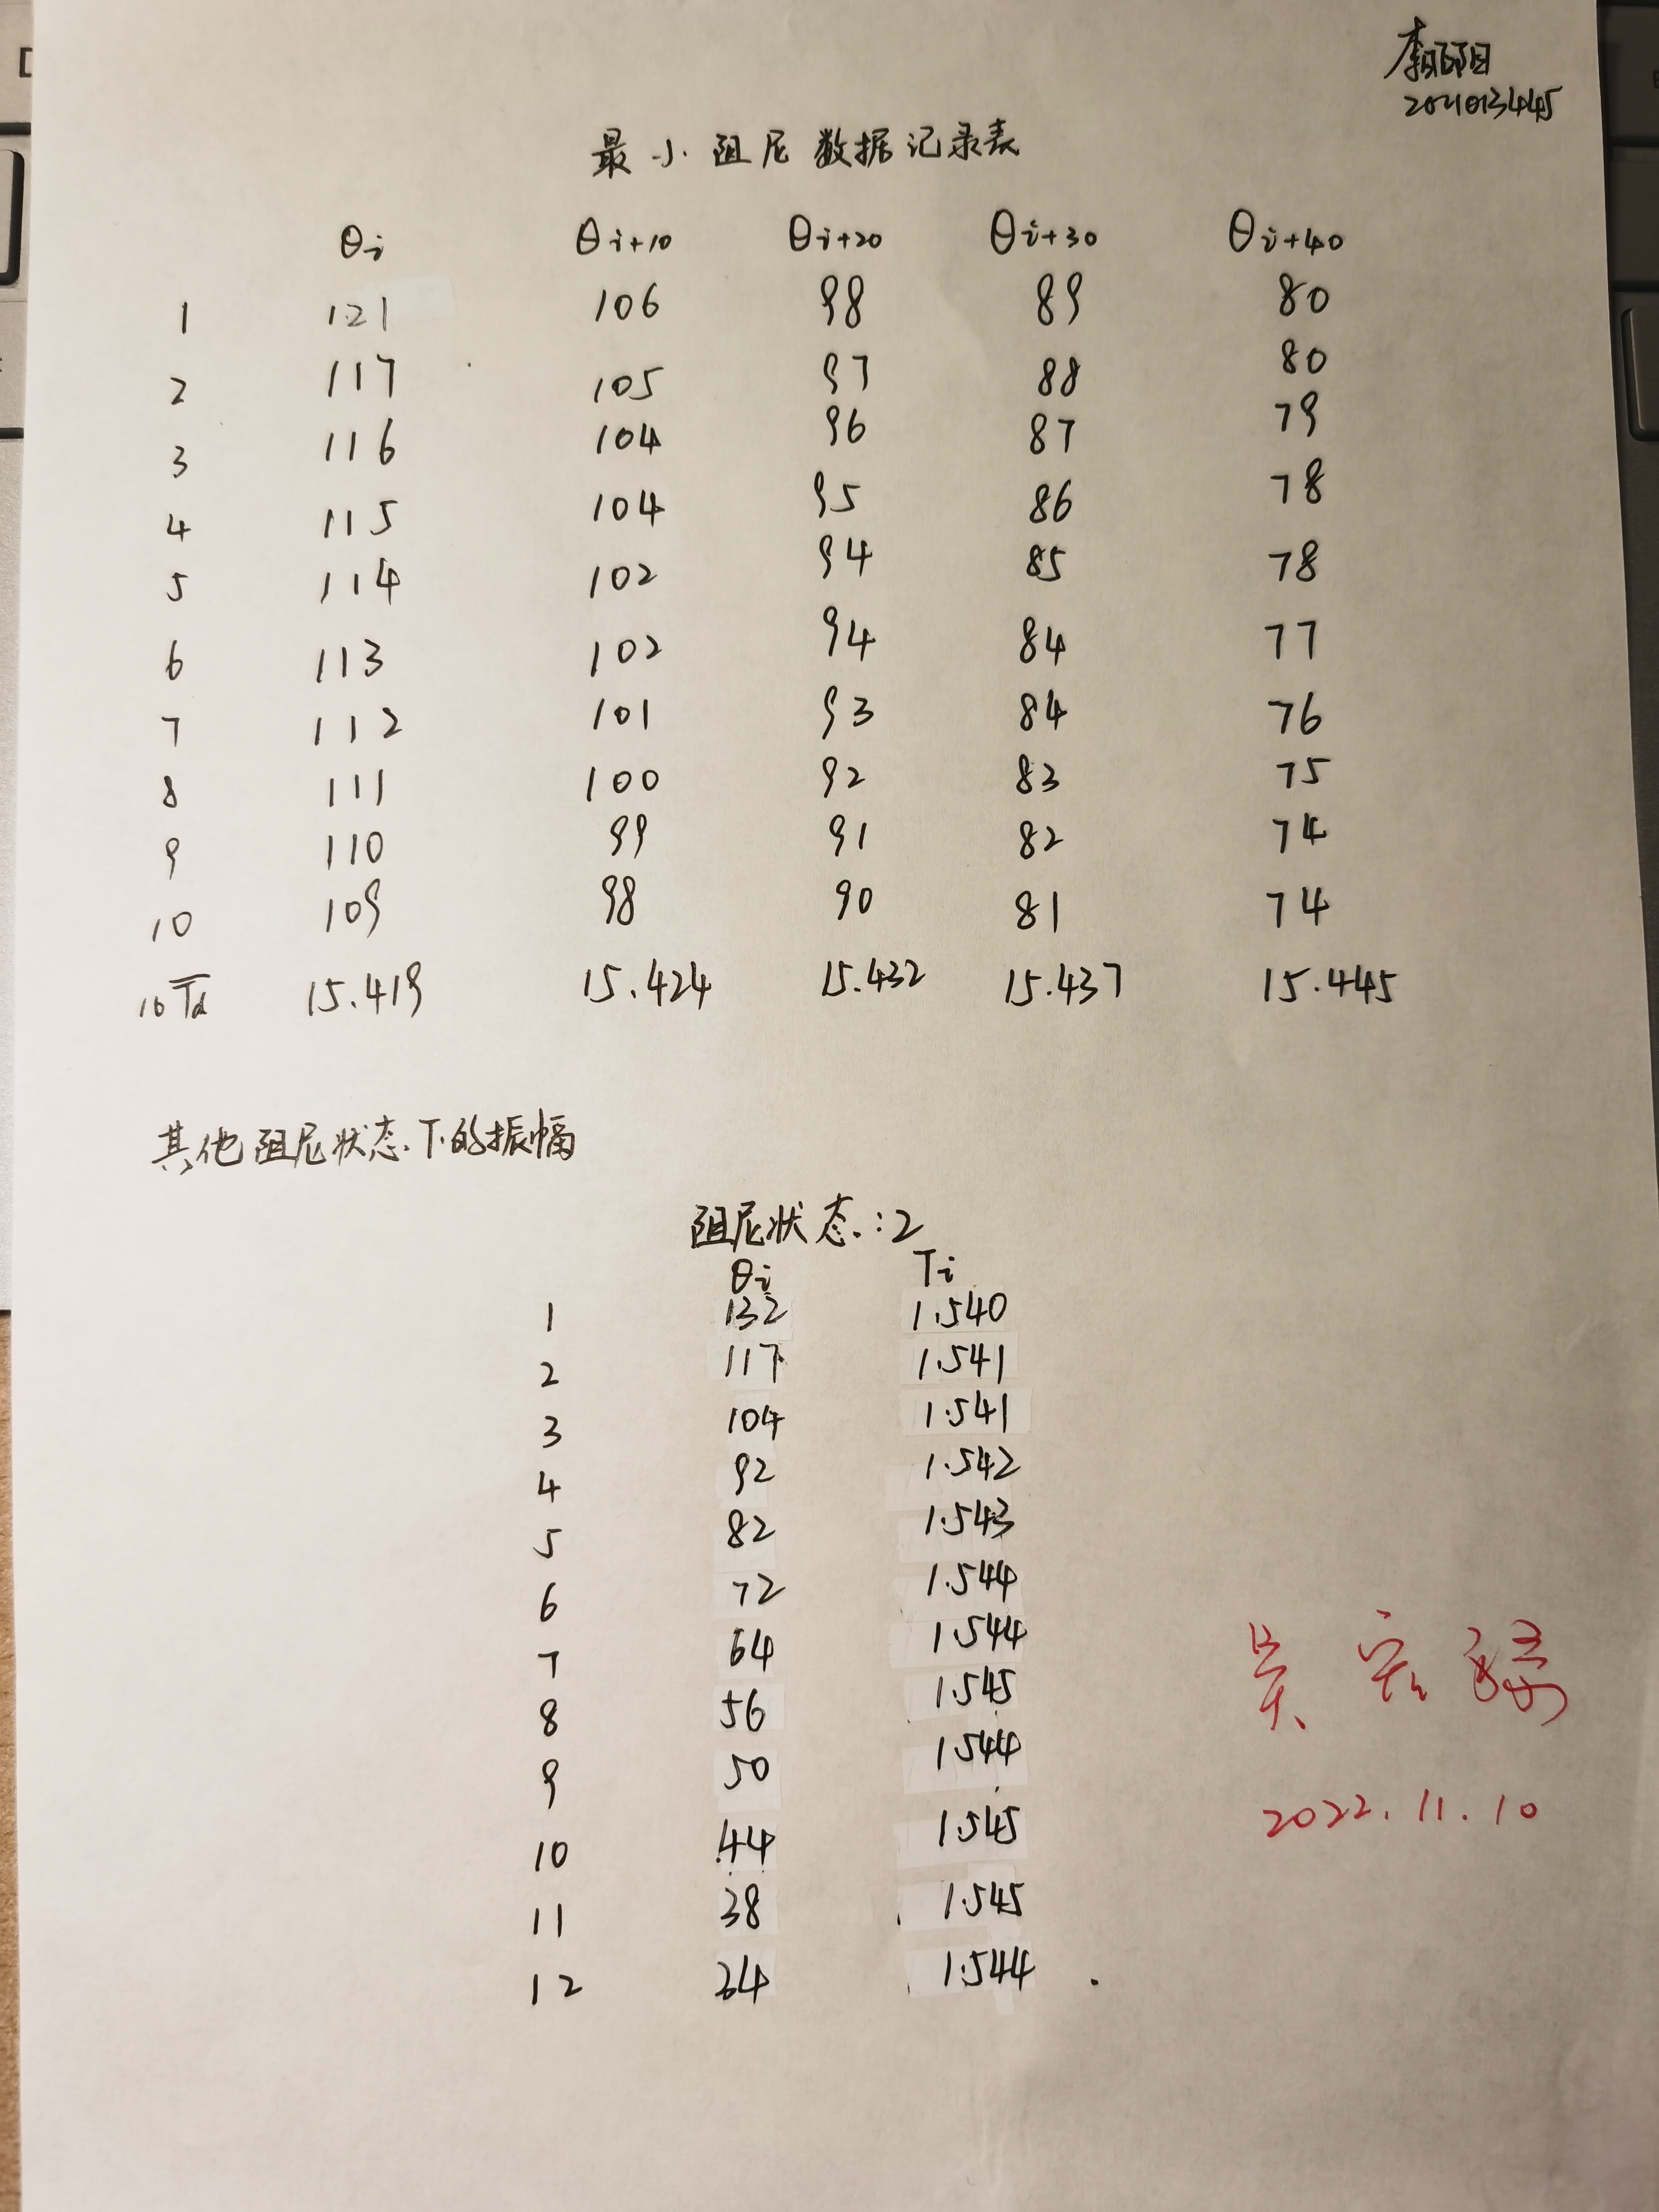 李昭阳
2021013445
最小阻尼数据记录表
θi θi+10 θi+20 θi+30 θi+40
1 121 106 98 89 80
2 117 105 97 88 80
3 116 104 96 87 79
4 115 104 95 86 78
5 114 102 94 85 78
6 113 102 94 84 77
7 112 101 93 84 76
8 111 100 92 83 75
9 110 99 91 82 74
10 109 98 90 81 74
10T̅d 15.419 15.424 15.432 15.437 15.445
其他阻尼状态下的振幅
阻尼状态:2
θi Ti
1 132 1.540
2 117 1.541
3 104 1.541
4 92 1.542
5 82 1.543
6 72 1.544
7 64 1.544
8 56 1.545
9 50 1.544
10 44 1.545
11 38 1.545
12 34 1.544
2022.11.10